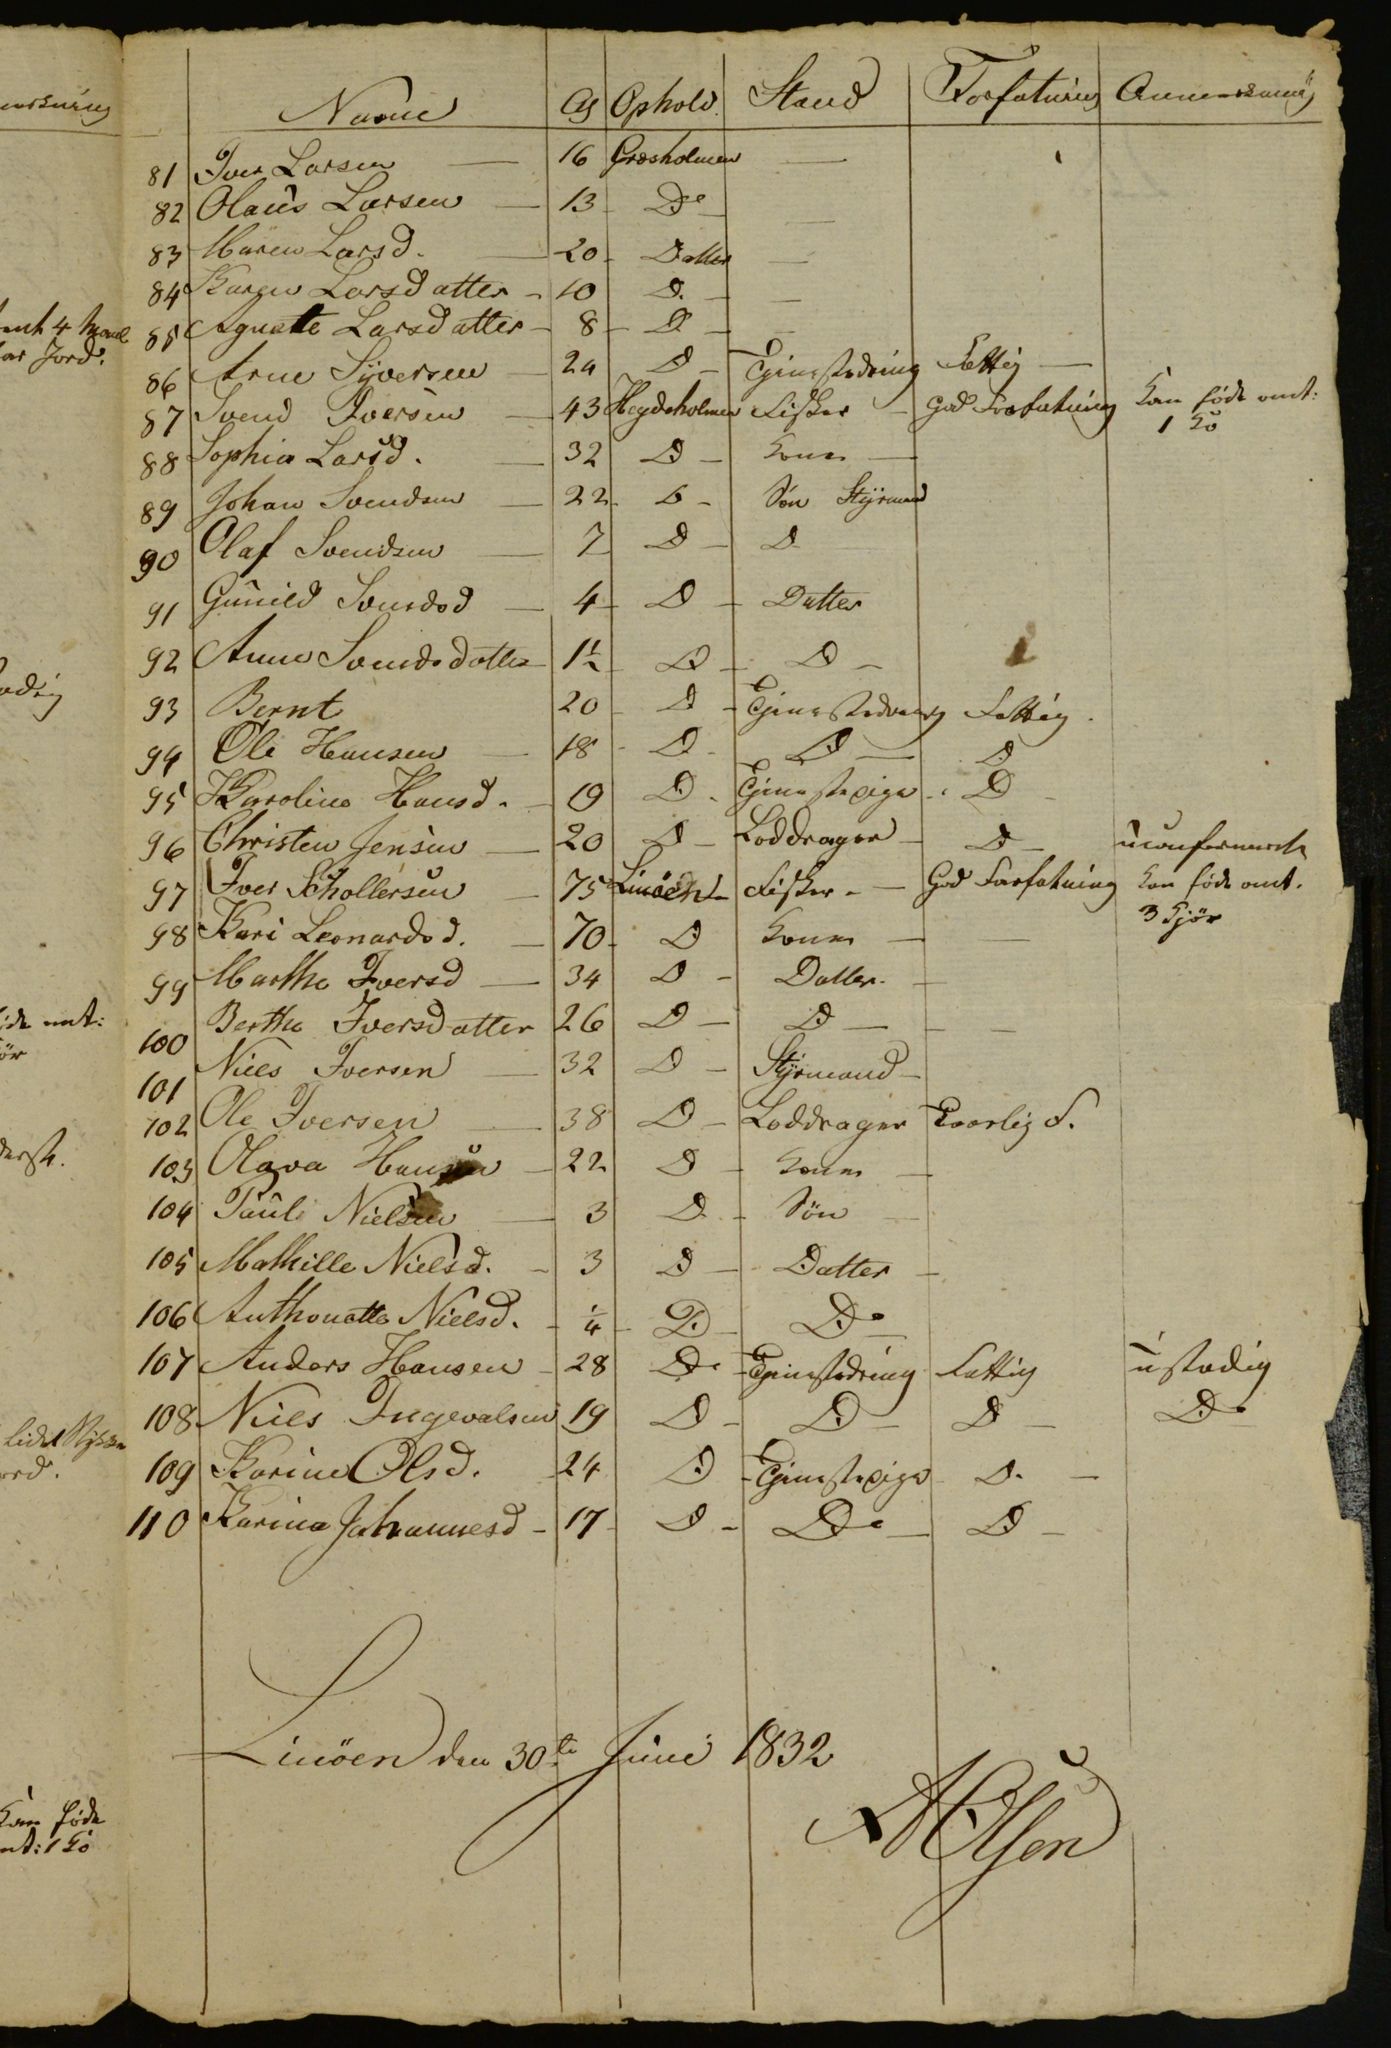 Navne Al Ophold. Stand Forfatning Anmerkning
81 Iver Larsen — 16 Græsholmen —
82 Olaus Larsen — 13 Do —
83 Maren Larsd. — 20 - Datter —
84 Karen Larsdatter - 10 D. — —
85 Agnette Larsdatter - 8 - D — —
86 Arne Syversen — 24 D - Tjenestedreng Fattig —
87 Svend Iversen — 43 Heydeholmen Fisker - God Forfatning Kan føde omt:
1 Ko
88 Sophia Larsd. — 32 D - Kone —
89 Johan Svendsen — 22 D - Søn Styrmand
90 Olaf Svendsen — 7 D - D
91 Gunild Svendsd — 4 - D - Datter
92 Anne Svendsdatter - 1½ - D - D -
93 Bernt 20 - D - Tjenestedreng Fattig.
94 Ole Hansen — 18 - D - D — D
95 Karoline Hansd. - 19 D. Tjenestepige - D -
96 Christen Jensen — 20 D - Loddrager - D - uconfirmerte
97 Iver Schollersen — 75 Linöen - Fisker - — God Forfatning Kan føde omt.
3 Kjør
98 Kari Leonardsd. — 70 - D Kone — —
99 Marthe Iversd — 34 D - Datter. —
100 Berthe Iversdatter 26 D — D — — —
101 Niels Iversen — 32 D - Styrmand —
102 Ole Iversen — 38 D - Loddrager Taarlig F.
103 Olava Hansen — 22 D - Kone —
104 Paul Nielsen — 3 D - Søn —
105 Mathille Nielsd. - 3 D - Datter —
106 Anthonette Nielsd. - ¼ - D. - Do
107 Anders Hansen - 28 Do - Tjenestedreng Fattig ustadig
108 Niels Ingevalsen 19 D - D - D - Do
109 Karine Olsd. 24 D - Tjenestepige D. —
110 Karine Johannesd - 17 - D - Do — D -
Linöen den 30te Juni 1832
A Olsen